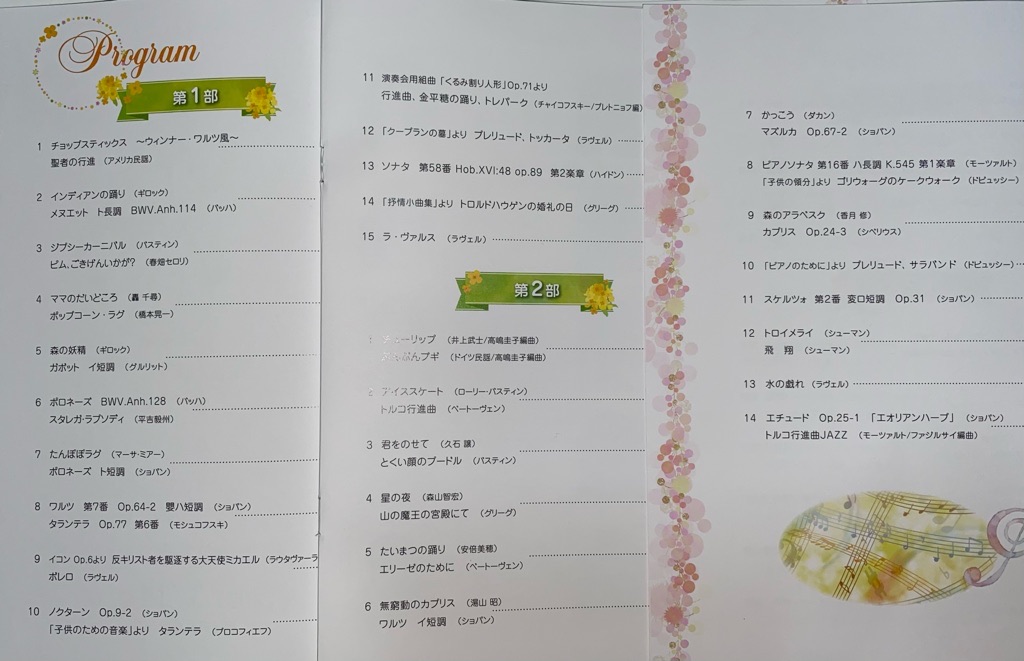 Program
第1部
1 チョップスティックス ～ウィンナー・ワルツ風～
聖者の行進 （アメリカ民謡）
2 インディアンの踊り （ギロック）
メヌエット ト長調 BWV.Anh.114 （バッハ）
3 ジプシーカーニバル （バスティン）
ピム、ごきげんいかが？ （春畑セロリ）
4 ママのだいどころ （轟 千尋）
ポップコーン・ラグ （橋本晃一）
5 森の妖精 （ギロック）
ガボット イ短調 （グルリット）
6 ポロネーズ BWV.Anh.128 （バッハ）
スタレガ・ラプソディ （平吉毅州）
7 たんぽぽラグ （マーサ・ミアー）
ポロネーズ ト短調 （ショパン）
8 ワルツ 第7番 Op.64-2 嬰ハ短調 （ショパン）
タランテラ Op.77 第6番 （モシュコフスキ）
9 イコン Op.6より 反キリスト者を駆逐する大天使ミカエル （ラウタヴァーラ
ボレロ （ラヴェル）
10 ノクターン Op.9-2 （ショパン）
「子供のための音楽」より タランテラ （プロコフィエフ）
11 演奏会用組曲「くるみ割り人形」Op.71より
行進曲、金平糖の踊り、トレパーク （チャイコフスキー/プレトニョフ編）
12 「クープランの墓」より プレリュード、トッカータ （ラヴェル）
13 ソナタ 第58番 Hob.XVI:48 op.89 第2楽章 （ハイドン）
14 「抒情小曲集」より トロルドハウゲンの婚礼の日 （グリーグ）
15 ラ・ヴァルス （ラヴェル）
第2部
1 チューリップ （井上武士/高嶋圭子編曲）
ぶんぶんブギ （ドイツ民謡/高嶋圭子編曲）
2 アイススケート （ローリー・バスティン）
トルコ行進曲 （ベートーヴェン）
3 君をのせて （久石 譲）
とくい顔のプードル （バスティン）
4 星の夜 （森山智宏）
山の魔王の宮殿にて （グリーグ）
5 たいまつの踊り （安倍美穂）
エリーゼのために （ベートーヴェン）
6 無窮動のカプリス （湯山 昭）
ワルツ イ短調 （ショパン）
7 かっこう （ダカン）
マズルカ Op.67-2 （ショパン）
8 ピアノソナタ 第16番 ハ長調 K.545 第1楽章 （モーツァルト）
「子供の領分」より ゴリウォーグのケークウォーク （ドビュッシー）
9 森のアラベスク （香月 修）
カプリス Op.24-3 （シベリウス）
10 「ピアノのために」より プレリュード、サラバンド （ドビュッシー）
11 スケルツォ 第2番 変ロ短調 Op.31 （ショパン）
12 トロイメライ （シューマン）
飛 翔 （シューマン）
13 水の戯れ （ラヴェル）
14 エチュード Op.25-1 「エオリアンハープ」 （ショパン）
トルコ行進曲JAZZ （モーツァルト/ファジルサイ編曲）